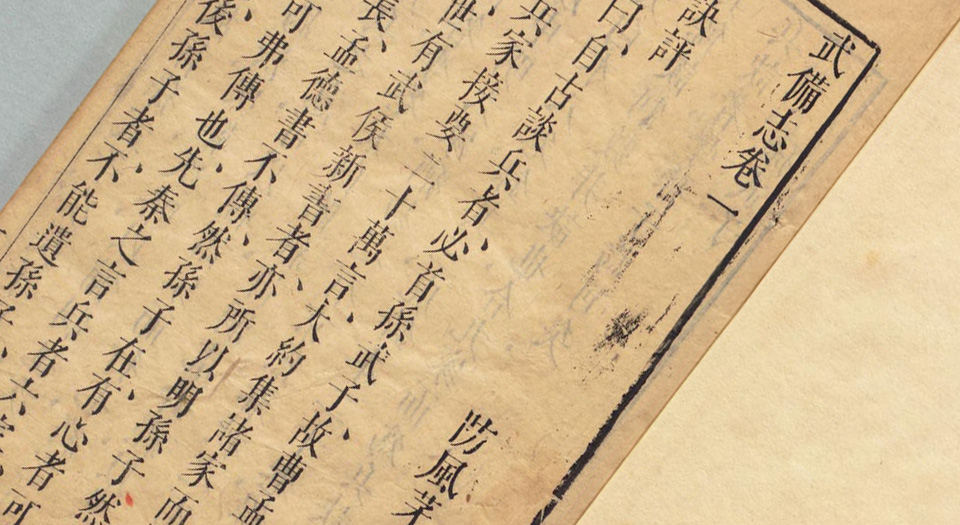 武備志卷一
訣評
防風茅
曰、自古談兵者必首孫武子、故曹孟
兵家接要二十萬言、大約集諸家而
世有武侯新書者、亦所以明孫子然
長、孟德書不傳、然孫子在、有心者可
可弗傳也、先秦之言兵者六家
後孫子者、不能遺孫子、